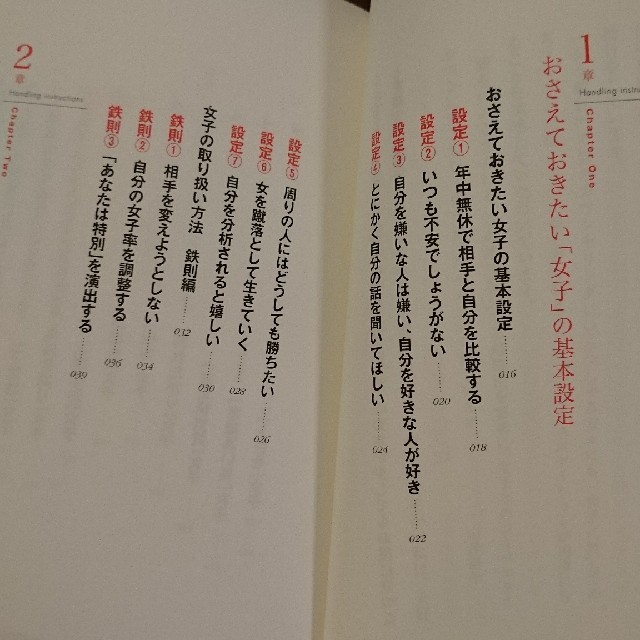 1章
Handling instru
Chapter One
おさえておきたい「女子」の基本設定
おさえておきたい女子の基本設定……016
設定① 年中無休で相手と自分を比較する……018
設定② いつも不安でしょうがない……020
設定③ 自分を嫌いな人は嫌い、自分を好きな人が好き……022
設定④ とにかく自分の話を聞いてほしい……024
設定⑤ 周りの人にはどうしても勝ちたい……026
設定⑥ 女を蹴落として生きていく……028
設定⑦ 自分を分析されると嬉しい……030
2章
Handling instructions
Chapter Two
女子の取り扱い方法 鉄則編……032
鉄則① 相手を変えようとしない……034
鉄則② 自分の女子率を調整する……036
鉄則③ 「あなたは特別」を演出する……039